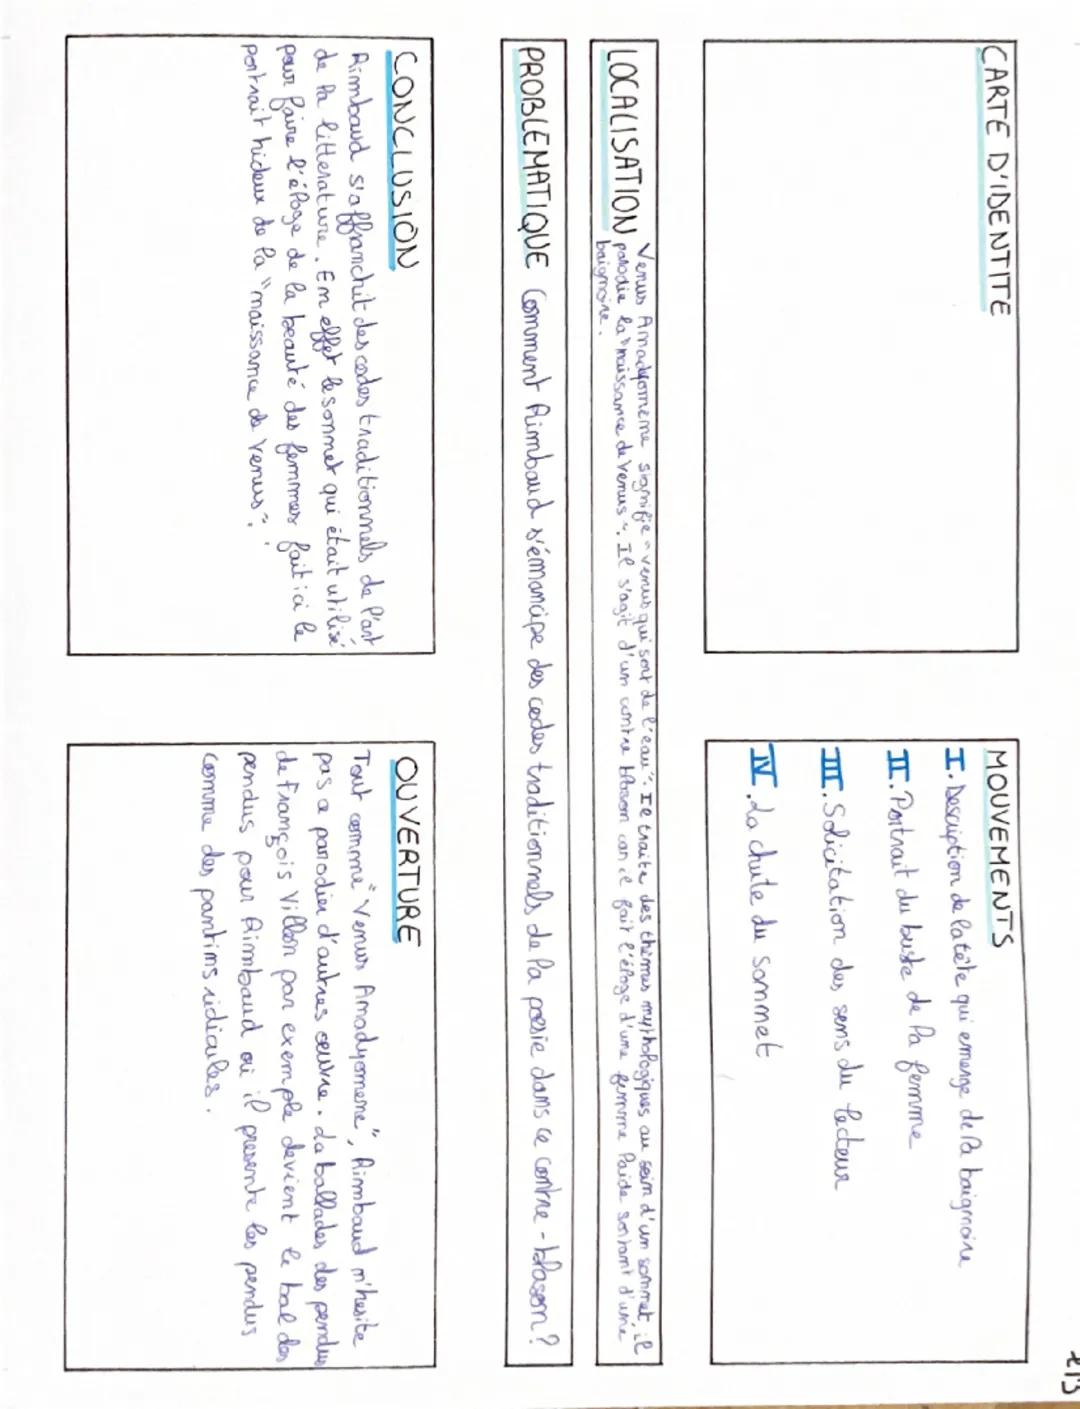 CARTE D'IDENTITE
MOUVEMENTS
I. Description de la tête qui emerge de la baignoire
II. Portrait du buste de la femme
III. Solicitation des sens du lecteur
IV. La chute du sonnet
LOCALISATION
Venus Anadyomene signifie "venus qui sort de l'eau". Il traite des thèmes mythologiques au sein d'un sonnet, il
parodie la "naissance de Venus". Il s'agit d'un contre blason car il fait l'éloge d'une femme laide sortant d'une
baignoire.
PROBLEMATIQUE Comment Rimbaud s'émancipe des codes traditionnels de la poesie dans ce contre-blason?
CONCLUSION
Rimbaud s'affranchit des codes traditionnels de l'art
de la litterature. En effet le sonnet qui était utilisé
pour faire l'éloge de la beauté des femmes fait ici le
portrait hideux de la "naissance de Venus".
OUVERTURE
Tout comme "Venus Anadyomene", Rimbaud n'hesite
pas a parodier d'autres œuvre. La ballades des pendus
de François Villon par exemple devient le bal des
pendus pour Rimbaud où il presente les pendus
comme des pantins ridicules.